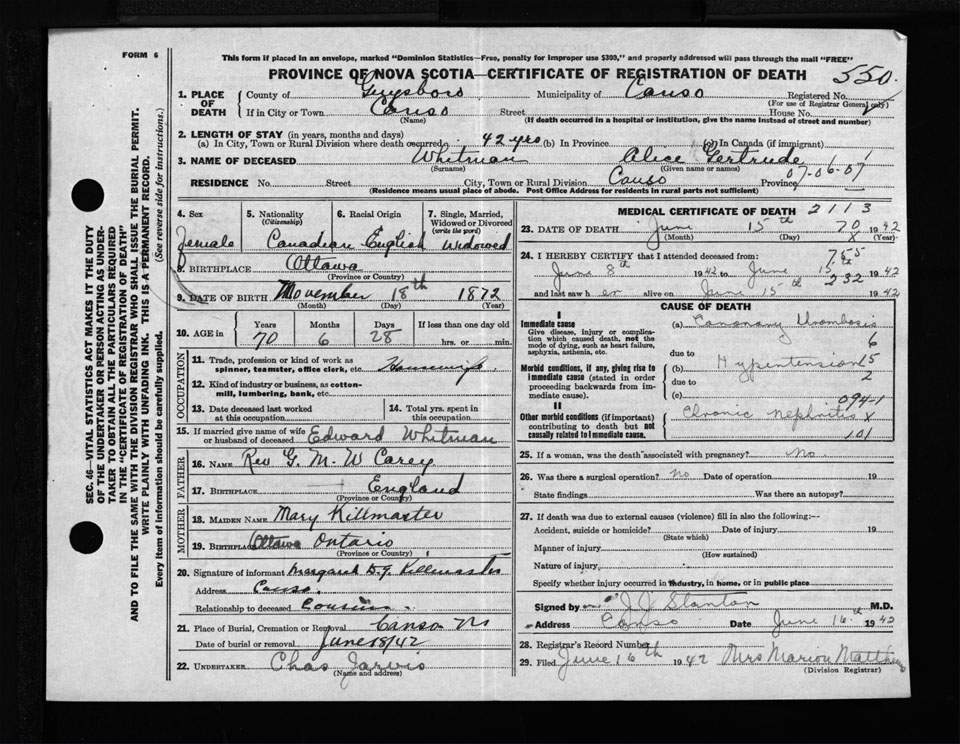 FORM 6
This form if placed in an envelope, marked "Dominion Statistics—Free, penalty for improper use $300," and properly addressed will pass through the mail "FREE"
PROVINCE OF NOVA SCOTIA—CERTIFICATE OF REGISTRATION OF DEATH
550.
SEC. 46—VITAL STATISTICS ACT MAKES IT THE DUTY
OF THE UNDERTAKER OR PERSON ACTING AS UNDER-
TAKER TO OBTAIN ALL THE PARTICULARS REQUIRED
IN THE "CERTIFICATE OF REGISTRATION OF DEATH"
AND TO FILE THE SAME WITH THE DIVISION REGISTRAR WHO SHALL ISSUE THE BURIAL PERMIT.
WRITE PLAINLY WITH UNFADING INK. THIS IS A PERMANENT RECORD.
Every item of information should be carefully supplied. (See reverse side for instructions.)
1. PLACE OF DEATH
County of Guysboro Municipality of Canso Registered No.
(For use of Registrar General only)
If in City or Town Canso Street House No.
(Name) (If death occurred in a hospital or institution, give the name instead of street and number)
2. LENGTH OF STAY (in years, months and days)
(a) In City, Town or Rural Division where death occurred 42 yrs (b) In Province (c) In Canada (if immigrant)
3. NAME OF DECEASED Whitman Alice Gertrude
(Surname) (Given name or names)
07-06-07
RESIDENCE No. Street City, Town or Rural Division Canso Province
(Residence means usual place of abode. Post Office Address for residents in rural parts not sufficient)
4. Sex Female
5. Nationality (Citizenship) Canadian
6. Racial Origin English
7. Single, Married, Widowed or Divorced (write the word) Widowed
8. BIRTHPLACE Ottawa
9. DATE OF BIRTH November 18th 1872
(Month) (Day) (Year)
10. AGE in Years Months Days If less than one day old
70 6 28 hrs. or min.
OCCUPATION
11. Trade, profession or kind of work as spinner, teamster, office clerk, etc. Housewife
12. Kind of industry or business, as cotton-mill, lumbering, bank, etc.
13. Date deceased last worked at this occupation
14. Total yrs. spent in this occupation
15. If married give name of wife or husband of deceased Edward Whitman
FATHER
16. NAME Rev G. M. W Carey
17. BIRTHPLACE England
(Province or Country)
MOTHER
18. MAIDEN NAME Mary Killmaster
19. BIRTHPLACE Ottawa Ontario
(Province or Country)
20. Signature of informant Margaret D.J. Killmaster
Address Canso.
Relationship to deceased Cousin.
21. Place of Burial, Cremation or Removal Canso NS
Date of burial or removal June 18/42
22. UNDERTAKER Chas Jarvis
(Name and address)
MEDICAL CERTIFICATE OF DEATH 2113
23. DATE OF DEATH June 15th 70 1942
(Month) (Day) X (Year)
24. I HEREBY CERTIFY that I attended deceased from:
June 8th 1942 to June 15 1942
232
and last saw her alive on June 15th 1942
CAUSE OF DEATH
I
Immediate cause
Give disease, injury or complication which caused death, not the mode of dying, such as heart failure, asphyxia, asthenia, etc.
(a) Coronary Thrombosis
6
due to
Morbid conditions, if any, giving rise to immediate cause (stated in order proceeding backwards from immediate cause).
(b) Hypertension 15
due to 2
(c) 094-1
II
Other morbid conditions (if important) contributing to death but not causally related to immediate cause.
Chronic nephritis X
101
25. If a woman, was the death associated with pregnancy? No.
26. Was there a surgical operation? No Date of operation 19
State findings Was there an autopsy?
27. If death was due to external causes (violence) fill in also the following:—
Accident, suicide or homicide? Date of injury 19
(State which)
Manner of injury
(How sustained)
Nature of injury
Specify whether injury occurred in industry, in home, or in public place
Signed by J.J. Stanton M.D.
Address Canso Date June 16th 1942
28. Registrar's Record Number
29. Filed June 16th 1942 Mrs Marion Matthews
(Division Registrar)